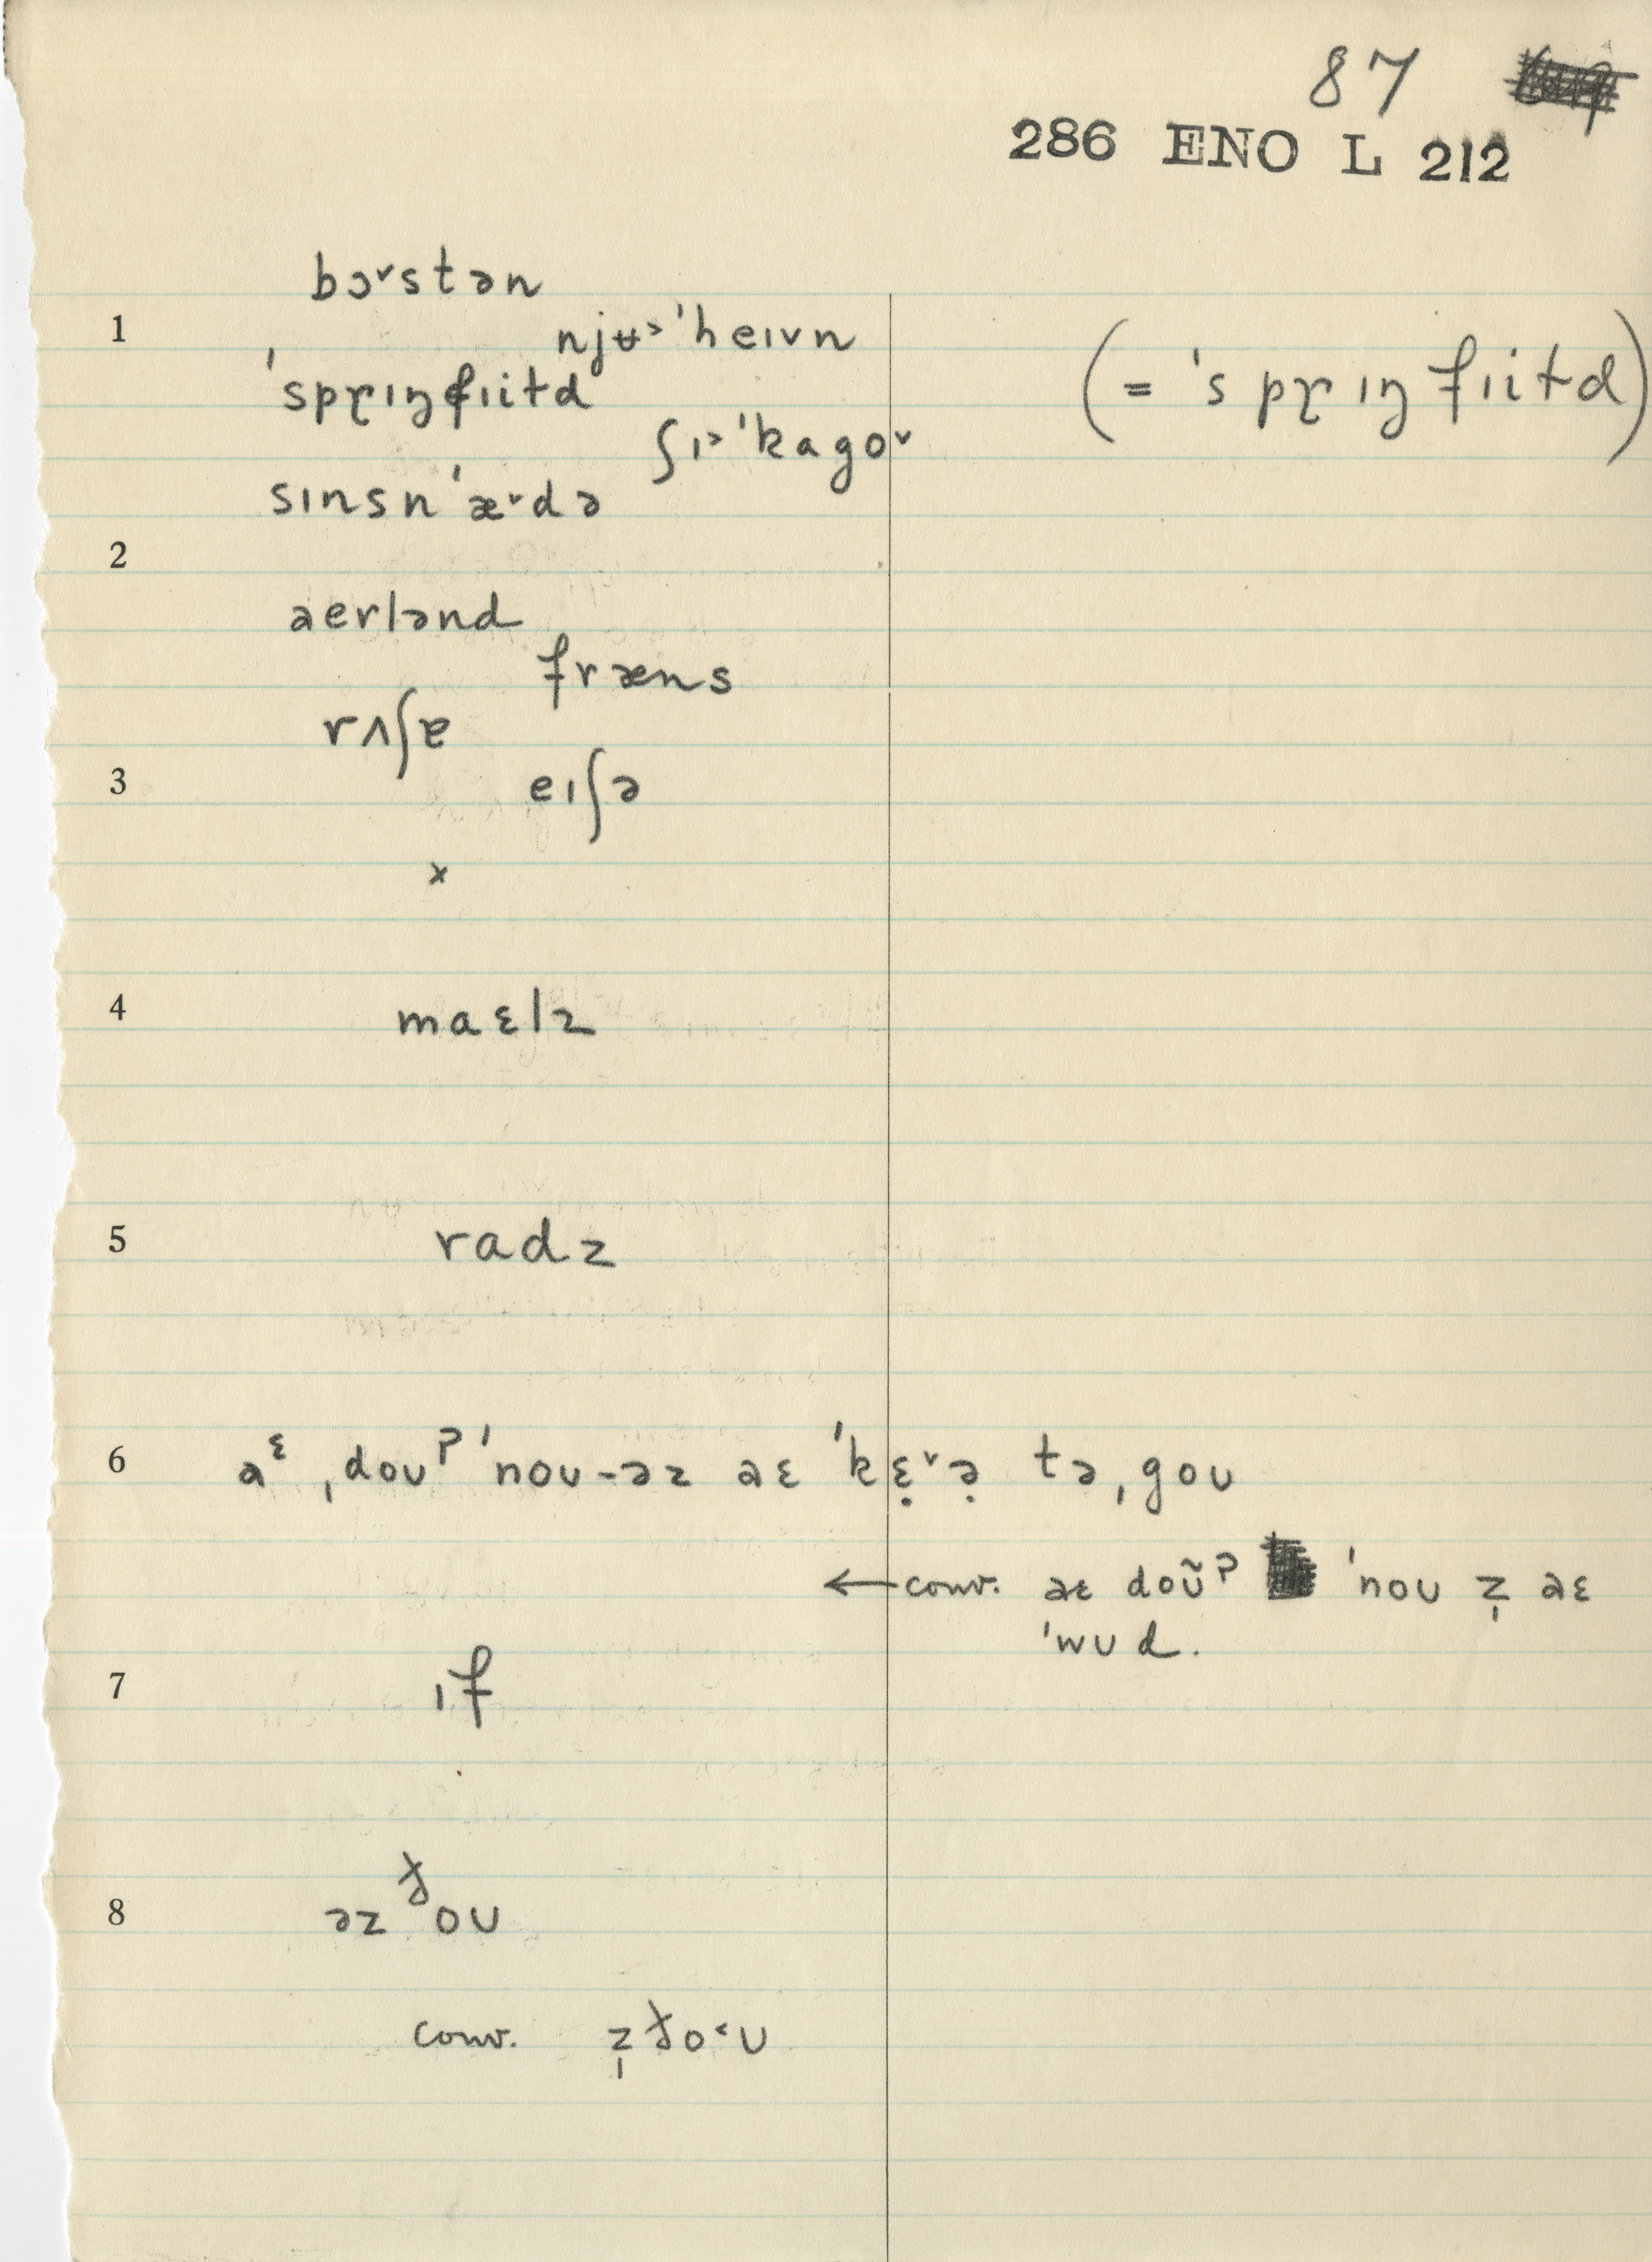 87
286 ENO L 212
bɔ˅stən
1
njʉ˃ˈheɪvn
ˈsprɪŋfiɪɫd
(= ˈsprɪŋfiɪɫd)
ʃɪ˃ˈkago˅
sɪnsnˈæ˅də
2
aerlənd
fræns
rʌʃɐ
3
eɪʃə
x
4
maɛlz
5
radz
6
aᵋ ˌdoʊˀ ˈnoʊ-əz aɛ ˈkɛ̣˅ə̣ tə ˌgoʊ
← conv. aɛ doʊ̃ˀ ˈnoʊ z̩ aɛ
ˈwʊd.
7
ɪf
8
əz ðoʊ
conv. z̩ ðo˂ʊ